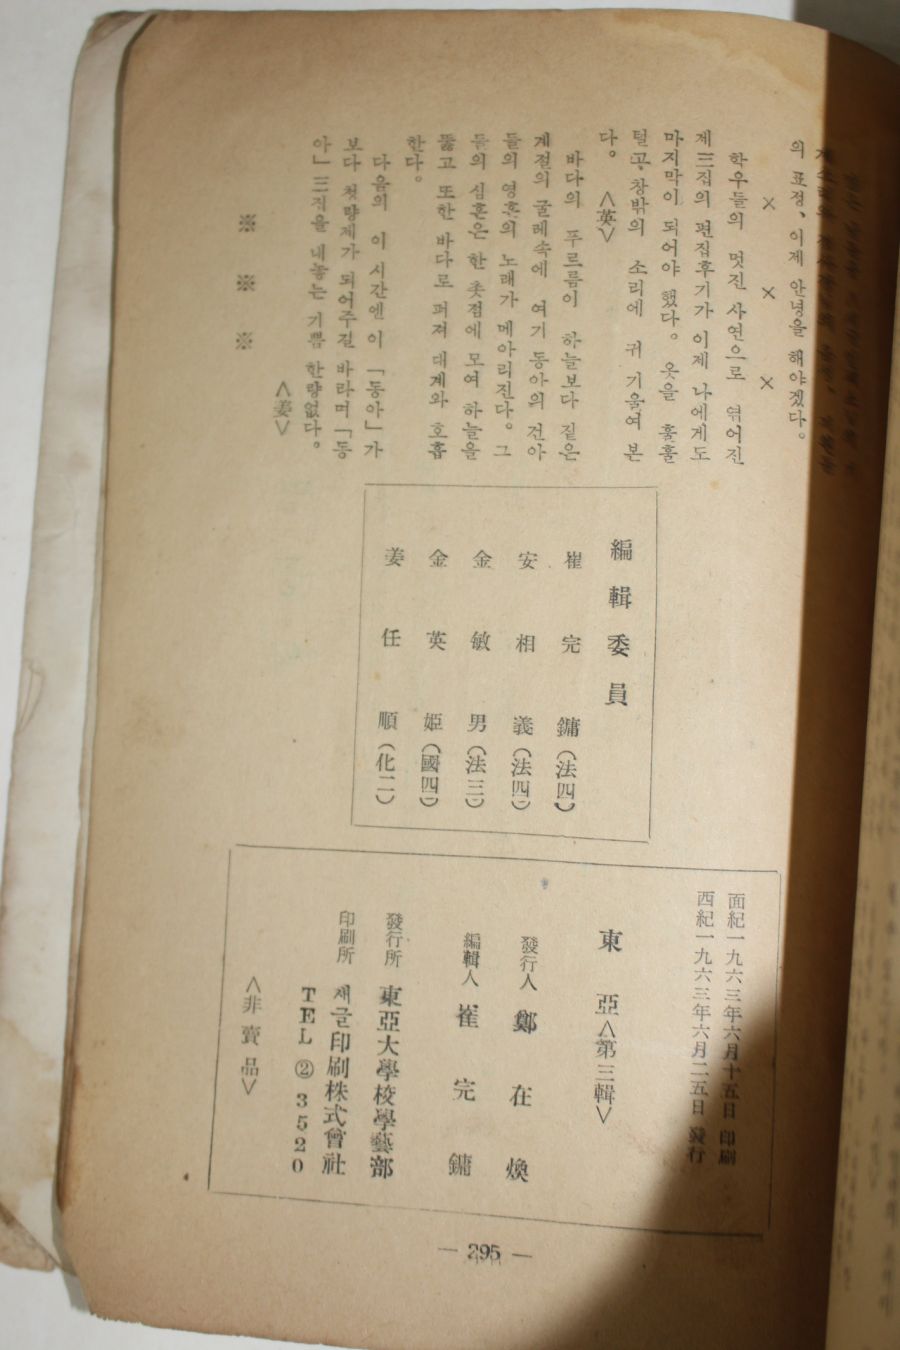 의 표정、이제 안녕을 해야겠다。
× × ×
학우들의 멋진 사연으로 엮어진
제三집의 편집후기가 이제 나에게도
마지막이 되어야 했다。 옷을 훌훌
털고、창밖의 소리에 귀 기울여 본
다。 <英>
바다의 푸르름이 하늘보다 짙은
계절의 굴레속에 여기 동아의 건아
들의 영혼의 노래가 메아리진다。그
들의 심혼은 한 촛점에 모여 하늘을
뚫고 또한 바다로 퍼져 대계와 호흡
한다。
다음의 이 시간엔 이 「동아」가
보다 첫량제가 되어주길 바라며「동
아」三집을 내놓는 기쁨 한량없다。
<姜>
※ ※ ※
編輯委員
崔完鏞(法四)
安相義(法四)
金敏男(法三)
金英姫(國四)
姜任順(化二)
面紀一九六三年六月十五日 印刷
西紀一九六三年六月二五日 發行
東亞<第三輯>
發行人 鄭在煥
編輯人 崔完鏞
發行所 東亞大學校學藝部
印刷所 새글印刷株式會社
TEL ② 3520
<非賣品>
— 295 —